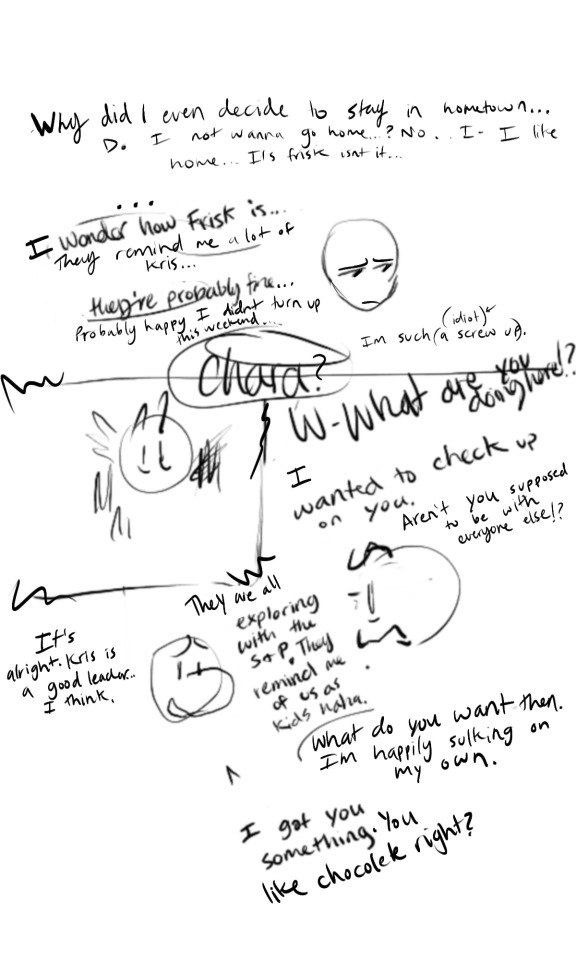 Why did I even decide to stay in hometown...
Do I not wanna go home..? No.. I- I like
home... It's frisk isnt it...
...
I wonder how Frisk is...
They remind me a lot of
Kris...
they're probably fine...
Probably happy I didnt turn up
this weekend...
Im such (a screw up).
(idiot)
chara?
W-What are you
doing here!?
I
wanted to check up
on you.
Aren't you supposed
to be with
everyone else!?
They are all
exploring
with the
S+P. They
remind me
of us as
kids haha.
It's
alright. Kris is
a good leader..
I think.
What do you want then.
I'm happily sulking on
my own.
I got you
something. You
like chocolete right?